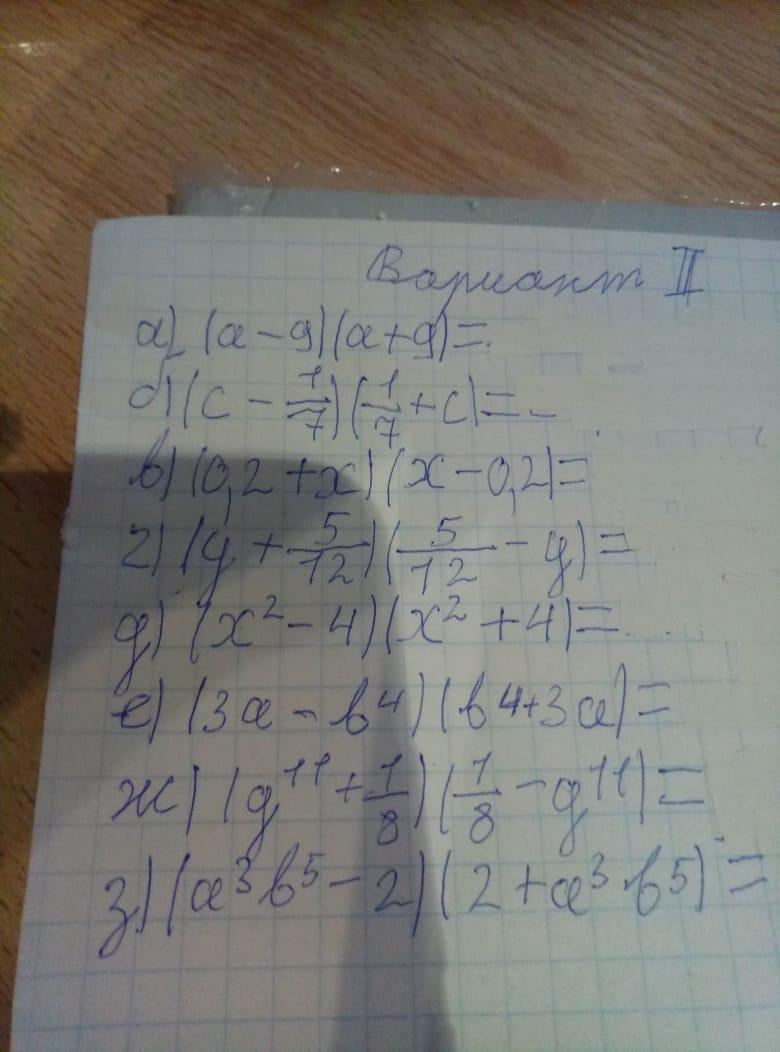 Вариант II
а) (a - 9)(a + 9) =
б) (c - 1/7)(1/7 + c) =
в) (0,2 + x)(x - 0,2) =
г) (y + 5/12)(5/12 - y) =
д) (x² - 4)(x² + 4) =
е) (3a - b⁴)(b⁴ + 3a) =
ж) (g¹¹ + 1/8)(1/8 - g¹¹) =
з) (a³b⁵ - 2)(2 + a³b⁵) =